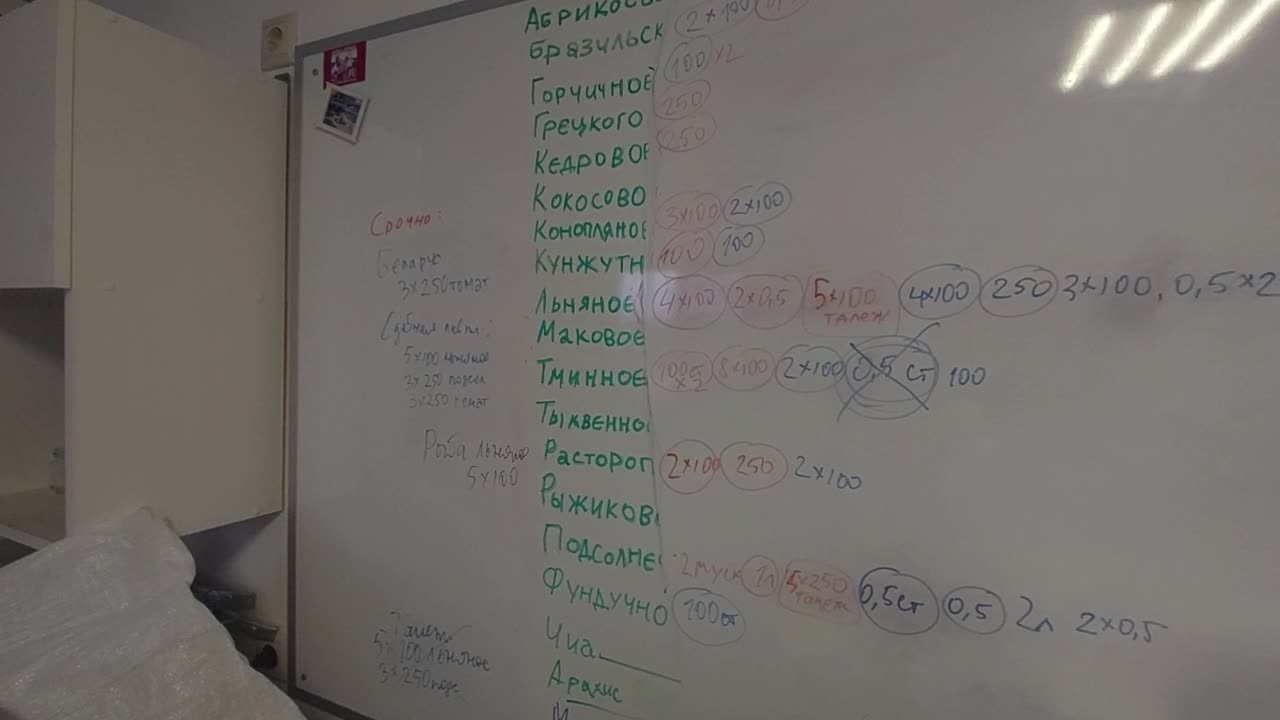 Абрикосо 2×100
Бразильск 100 ×2
Горчичное 250
Грецкого 250
Кедровое
Кокосово 3×100 2×100
Конопляное 100 100
Кунжутн
Льняное 4×100 2×0,5 5×100 талеж 4×100 250 3×100, 0,5×2
Маковое
Тминное 100ст ×2 8×100 2×100 0,5 ст 100
Тыквенно
Растороп 2×100 250 2×100
Рыжиков
Подсолне
2 муск 1л 5×250 талеж 0,5ст 0,5 2л 2×0,5
Фундучно 100ст
Чиа
Арахис
Срочно:
Беларус
3×250 томат
5×100 льняное
3×250 подсол
3×250 томат
льняно
5×100
Талеж
5×100 льняное
3×250 подс